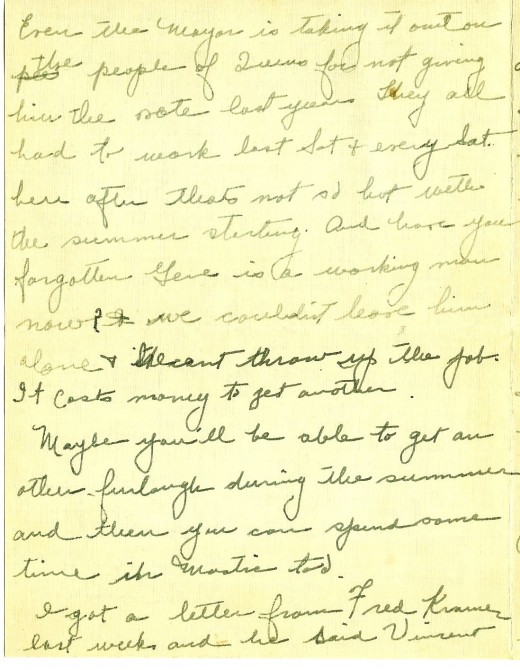 Even the Mayor is taking it out on
the people of Queens for not giving
him the vote last year. They all
had to work last Sat & every Sat.
here after thats not so hot with
the summer starting. And have you
forgotten Gene is a working man
now? we couldn't leave him
alone & he cant throw up the job.
It costs money to get another.
Maybe you'll be able to get an
other furlough during the summer
and then you can spend some
time in Mastic too.
I got a letter from Fred Kramer
last week and he said Vincent